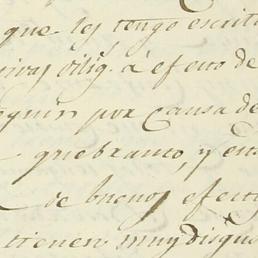 que les tengo escrito
vivas dilig.s á efecto de
seguir por causa de
quebranto, y en
de buenos efecto
tienen muy disgus